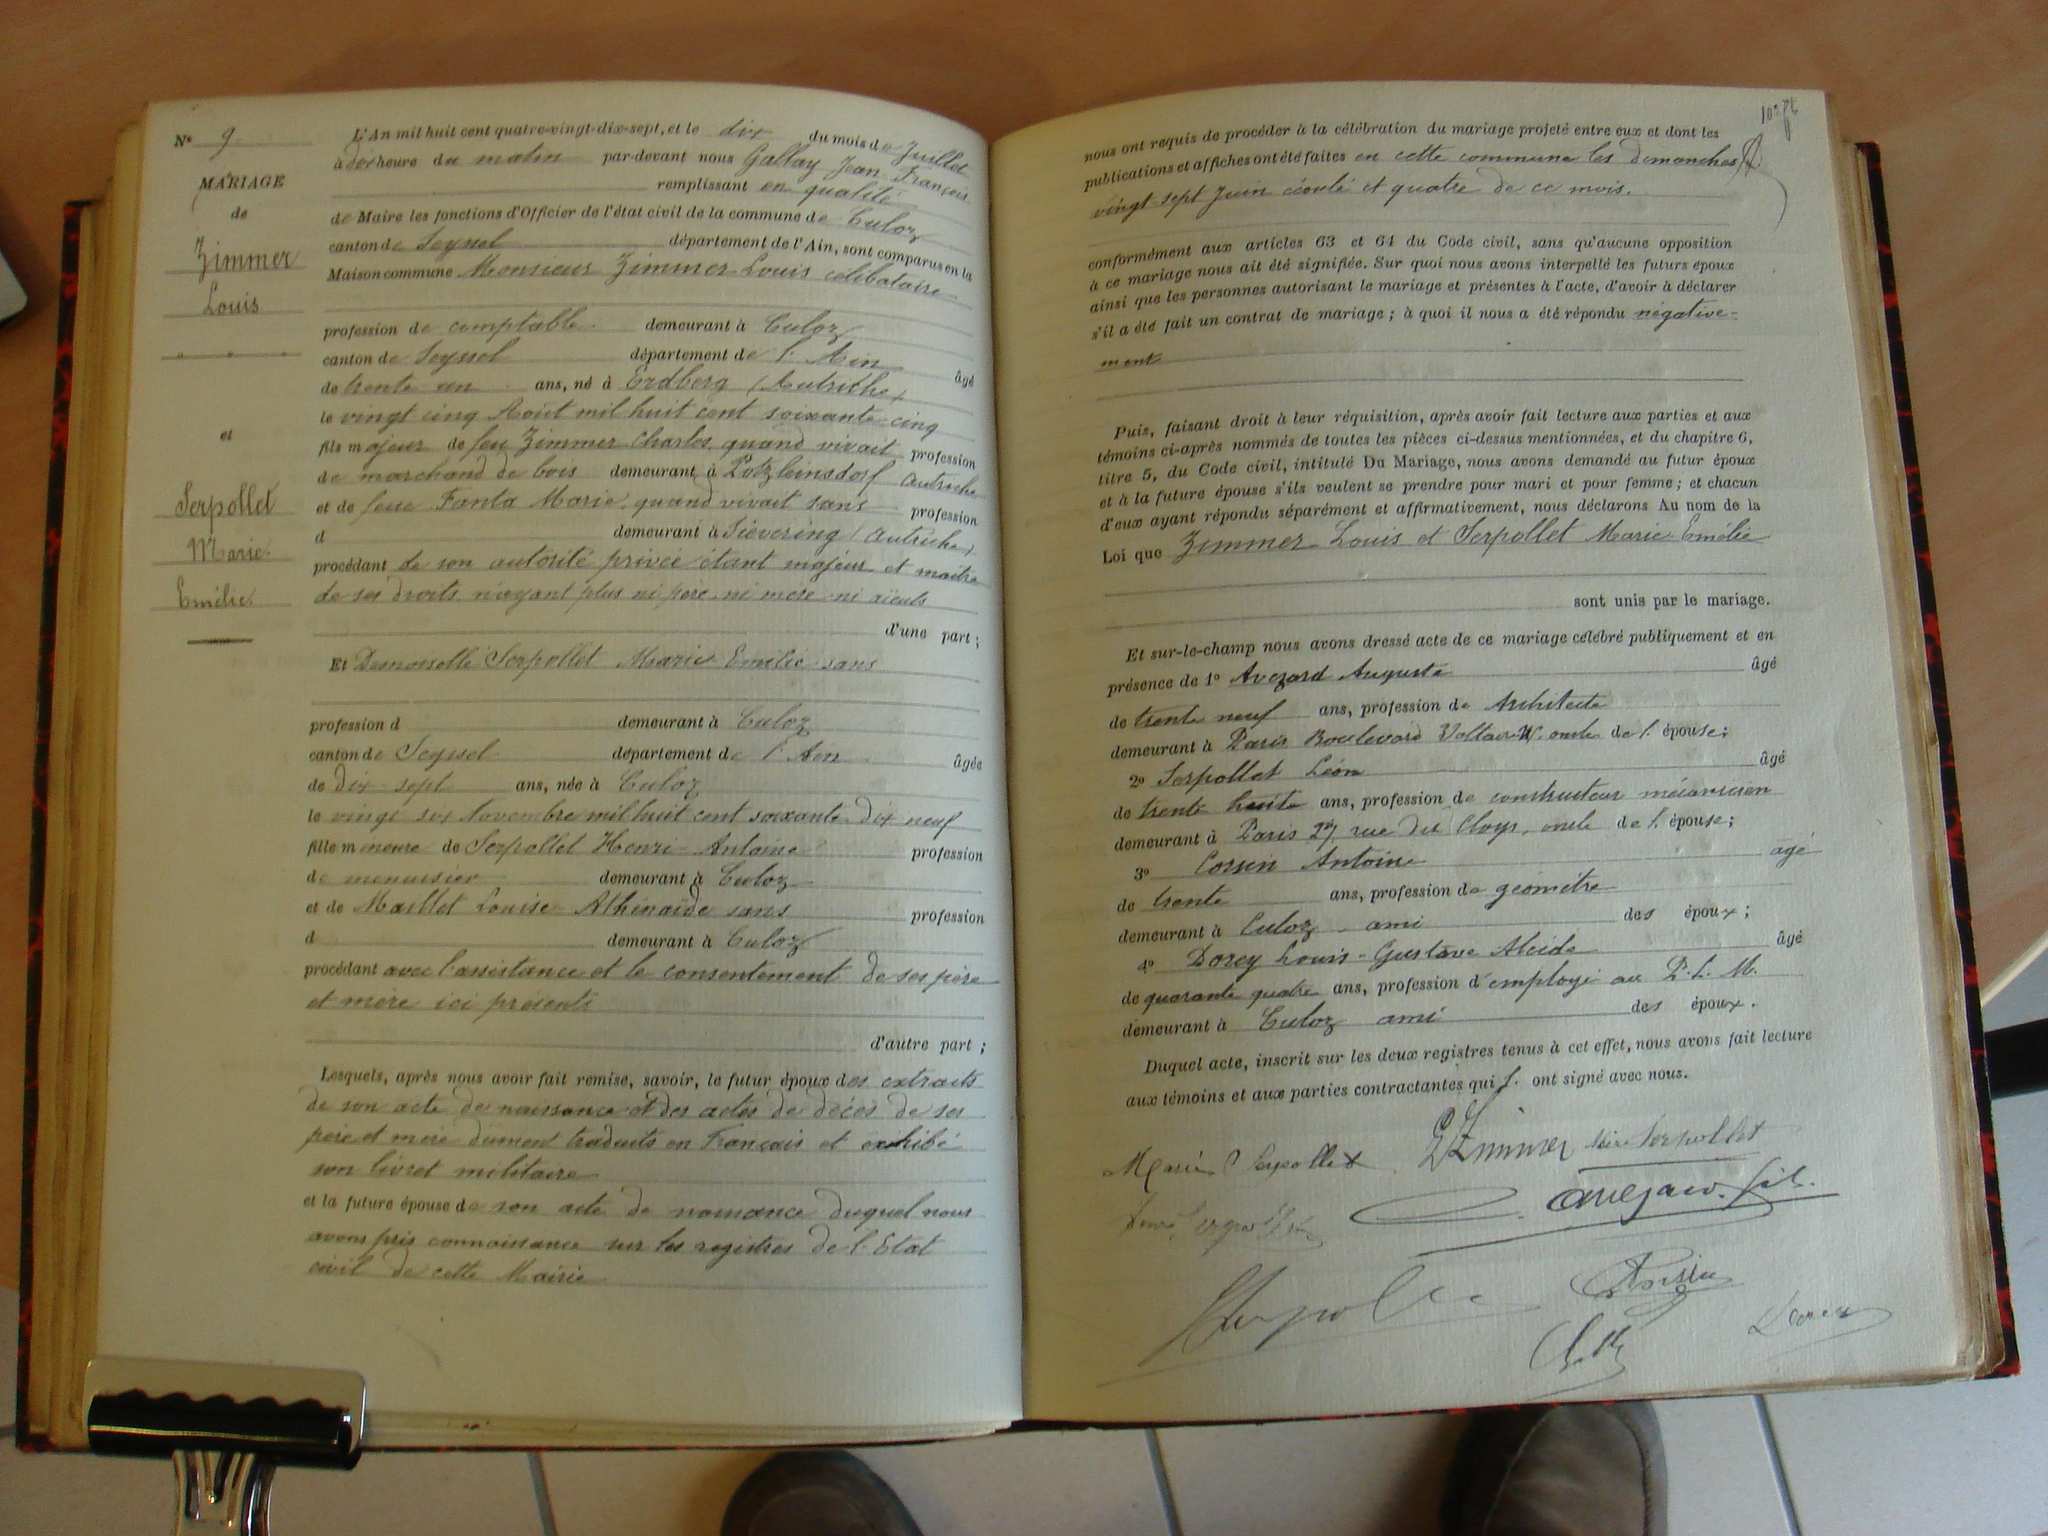 Nº 9
MARIAGE
de
Zimmer
Louis
et
Serpollet
Marie
Emélie
L'An mil huit cent quatre-vingt-dix-sept, et le dix du mois de Juillet
à dix heure du matin par-devant nous Gallay Jean François
remplissant en qualité
de Maire les fonctions d'Officier de l'état civil de la commune de Culoz
canton de Seyssel département de l'Ain, sont comparus en la
Maison commune Monsieur Zimmer Louis célibataire
profession de comptable demeurant à Culoz
canton de Seyssel département de l'Ain âgé
de trente un ans, né à Erdberg (Autriche)
le vingt cinq Août mil huit cent soixante cinq
fils majeur de feu Zimmer Charles quand vivait profession
de marchand de bois demeurant à Potzleinsdorf Autriche
et de feue Fanta Marie quand vivait sans profession
d demeurant à Sievering (Autriche)
procédant de son autorité privée étant majeur et maître
de ses droits n'ayant plus ni père ni mère ni aïeuls
d'une part ;
Et Demoiselle Serpollet Marie Emélie sans
profession d demeurant à Culoz
canton de Seyssel département de l'Ain âgée
de dix sept ans, née à Culoz
le vingt six Novembre mil huit cent soixante dix neuf
fille mineure de Serpollet Henri Antoine profession
de menuisier demeurant à Culoz
et de Maillet Louise Athénaïde sans profession
d demeurant à Culoz
procédant avec l'assistance et le consentement de ses père
et mère ici présents
d'autre part ;
Lesquels, après nous avoir fait remise, savoir, le futur époux des extraits
de son acte de naissance et des actes de décès de ses
père et mère dûment traduits en Français et exhibé
son livret militaire
et la future épouse de son acte de naissance duquel nous
avons pris connaissance sur les registres de l'Etat
civil de cette Mairie
nous ont requis de procéder à la célébration du mariage projeté entre eux et dont les
publications et affiches ont été faites en cette commune les dimanches
vingt-sept Juin écoulé et quatre de ce mois.
conformément aux articles 63 et 64 du Code civil, sans qu'aucune opposition
à ce mariage nous ait été signifiée. Sur quoi nous avons interpellé les futurs époux
ainsi que les personnes autorisant le mariage et présentes à l'acte, d'avoir à déclarer
s'il a été fait un contrat de mariage ; à quoi il nous a été répondu négative-
ment
Puis, faisant droit à leur réquisition, après avoir fait lecture aux parties et aux
témoins ci-après nommés de toutes les pièces ci-dessus mentionnées, et du chapitre 6,
titre 5, du Code civil, intitulé Du Mariage, nous avons demandé au futur époux
et à la future épouse s'ils veulent se prendre pour mari et pour femme ; et chacun
d'eux ayant répondu séparément et affirmativement, nous déclarons Au nom de la
Loi que Zimmer Louis et Serpollet Marie Emélie
sont unis par le mariage.
Et sur-le-champ nous avons dressé acte de ce mariage célébré publiquement et en
présence de 1º Avezard Auguste âgé
de trente neuf ans, profession de Architecte
demeurant à Paris Boulevard Voltaire oncle de l'épouse ;
2º Serpollet Léon âgé
de trente huit ans, profession de constructeur mécanicien
demeurant à Paris 27, rue des Cloys, oncle de l'épouse ;
3º Corsin Antoine agé
de trente ans, profession de géomètre
demeurant à Culoz ami des époux ;
4º Dorey Louis-Gustave Alcide âgé
de quarante quatre ans, profession d'employé au P. L. M.
demeurant à Culoz ami des époux.
Duquel acte, inscrit sur les deux registres tenus à cet effet, nous avons fait lecture
aux témoins et aux parties contractantes qui ont signé avec nous.
Marie Serpollet L Zimmer Serpollet
Serpollet